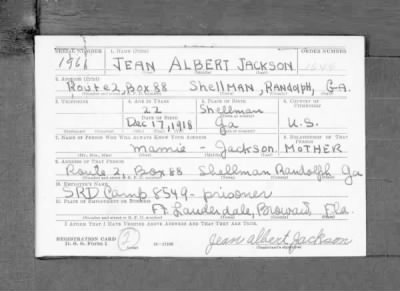 SERIAL NUMBER 1. NAME (Print) ORDER NUMBER
1961 JEAN ALBERT JACKSON
2. ADDRESS (Print)
Route 2, Box 88 Shellman, Randolph, GA.
3. TELEPHONE 4. AGE IN YEARS 5. PLACE OF BIRTH 6. COUNTRY OF CITIZENSHIP
22 Shellman
DATE OF BIRTH
Dec 17, 1918 Ga U.S.
7. NAME OF PERSON WHO WILL ALWAYS KNOW YOUR ADDRESS 8. RELATIONSHIP OF THAT PERSON
Mamie - Jackson. MOTHER
(Mr., Mrs., Miss) (First) (Middle) (Last)
9. ADDRESS OF THAT PERSON
Route 21, Box 88 Shellman Randolph Ga
10. EMPLOYER'S NAME
SRD Camp 8549 - prisoner
11. PLACE OF EMPLOYMENT OR BUSINESS
Ft Lauderdale, Broward, Fla.
I AFFIRM THAT I HAVE VERIFIED ABOVE ANSWERS AND THAT THEY ARE TRUE.
REGISTRATION CARD
D. S. S. Form 1
2
Jean albert Jackson